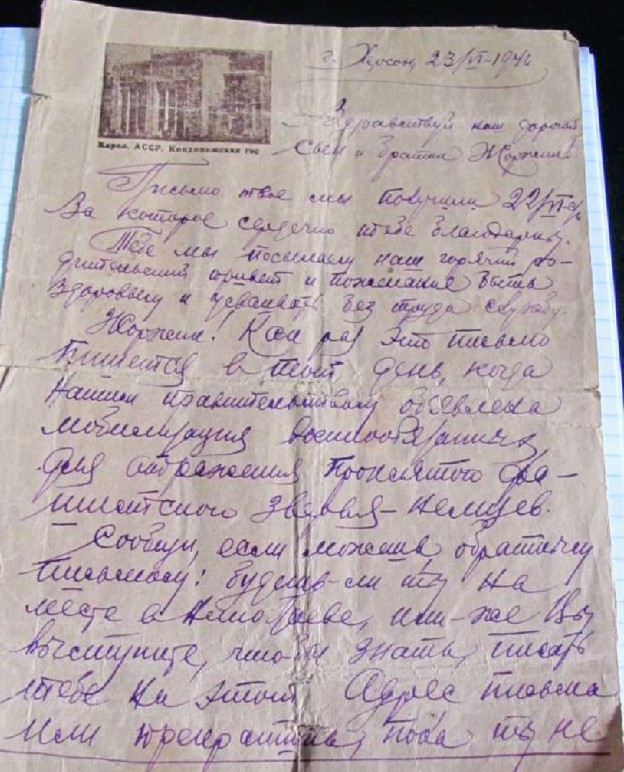 г. Херсон, 23/VI-1941
Здравствуй наш дорогой
Сын и братик Жоржик!
Карел. АССР. Кондопожская гэс
Письмо твое мы получили 22/VI-с/г
За которое сердечно тебя благодарим.
Тебе мы посылаем наш горячий ро-
дительский привет и пожелание быть
здоровым и усваивать без труда службу.
Жоржик! Как раз это письмо
пишется в тот день, когда
нашим правительством объявлена
мобилизация военнообязанных
для отражения проклятого фа-
шистского зверья-немцев.
Сообщи, если можешь, обратным
письмом: будешь-ли ты на
месте в, или-же Вы
выступите, чтобы знать, писать
тебе на этот Адрес письма
или прекратить, пока ты не